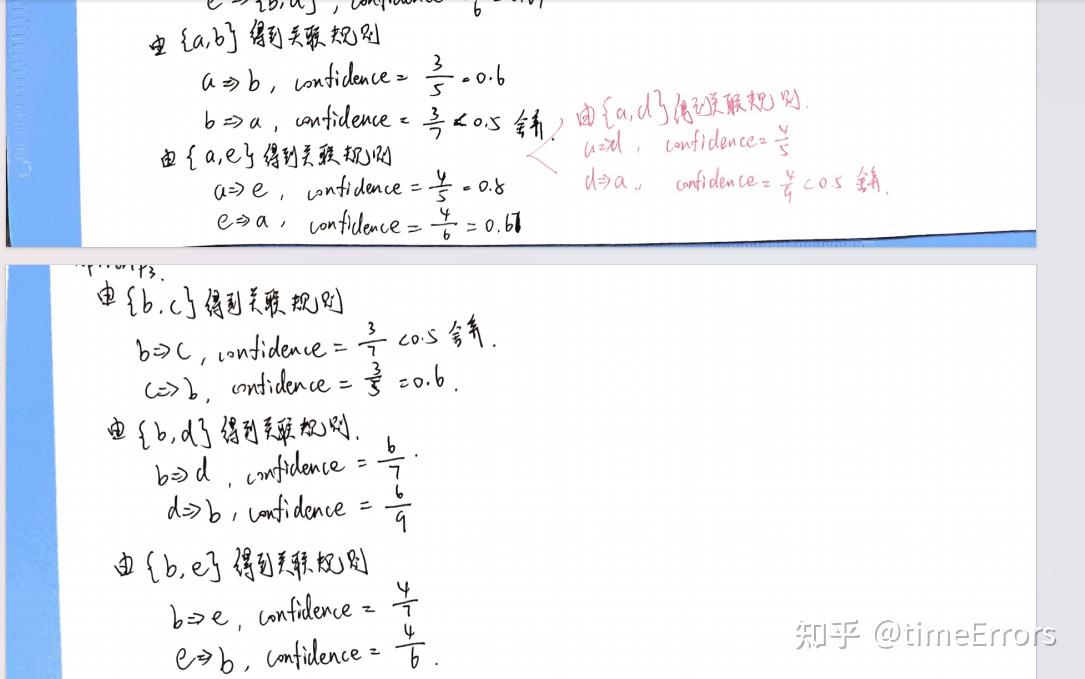 e⇒{b,d}, confidence = 4/6 = 0.67
由{a,b}得到关联规则
a⇒b, confidence = 3/5 = 0.6
b⇒a, confidence = 3/7 < 0.5 舍弃.
由{a,d}得到关联规则.
a⇒d, confidence = 4/5
d⇒a, confidence = 4/9 < 0.5 舍弃.
由{a,e}得到关联规则
a⇒e, confidence = 4/5 = 0.8
e⇒a, confidence = 4/6 = 0.67
由{b,c}得到关联规则
b⇒c, confidence = 3/7 < 0.5 舍弃.
c⇒b, confidence = 3/5 = 0.6.
由{b,d}得到关联规则.
b⇒d, confidence = 6/7.
d⇒b, confidence = 6/9
由{b,e}得到关联规则
b⇒e, confidence = 4/7
e⇒b, confidence = 4/6.
知乎 @timeErrors